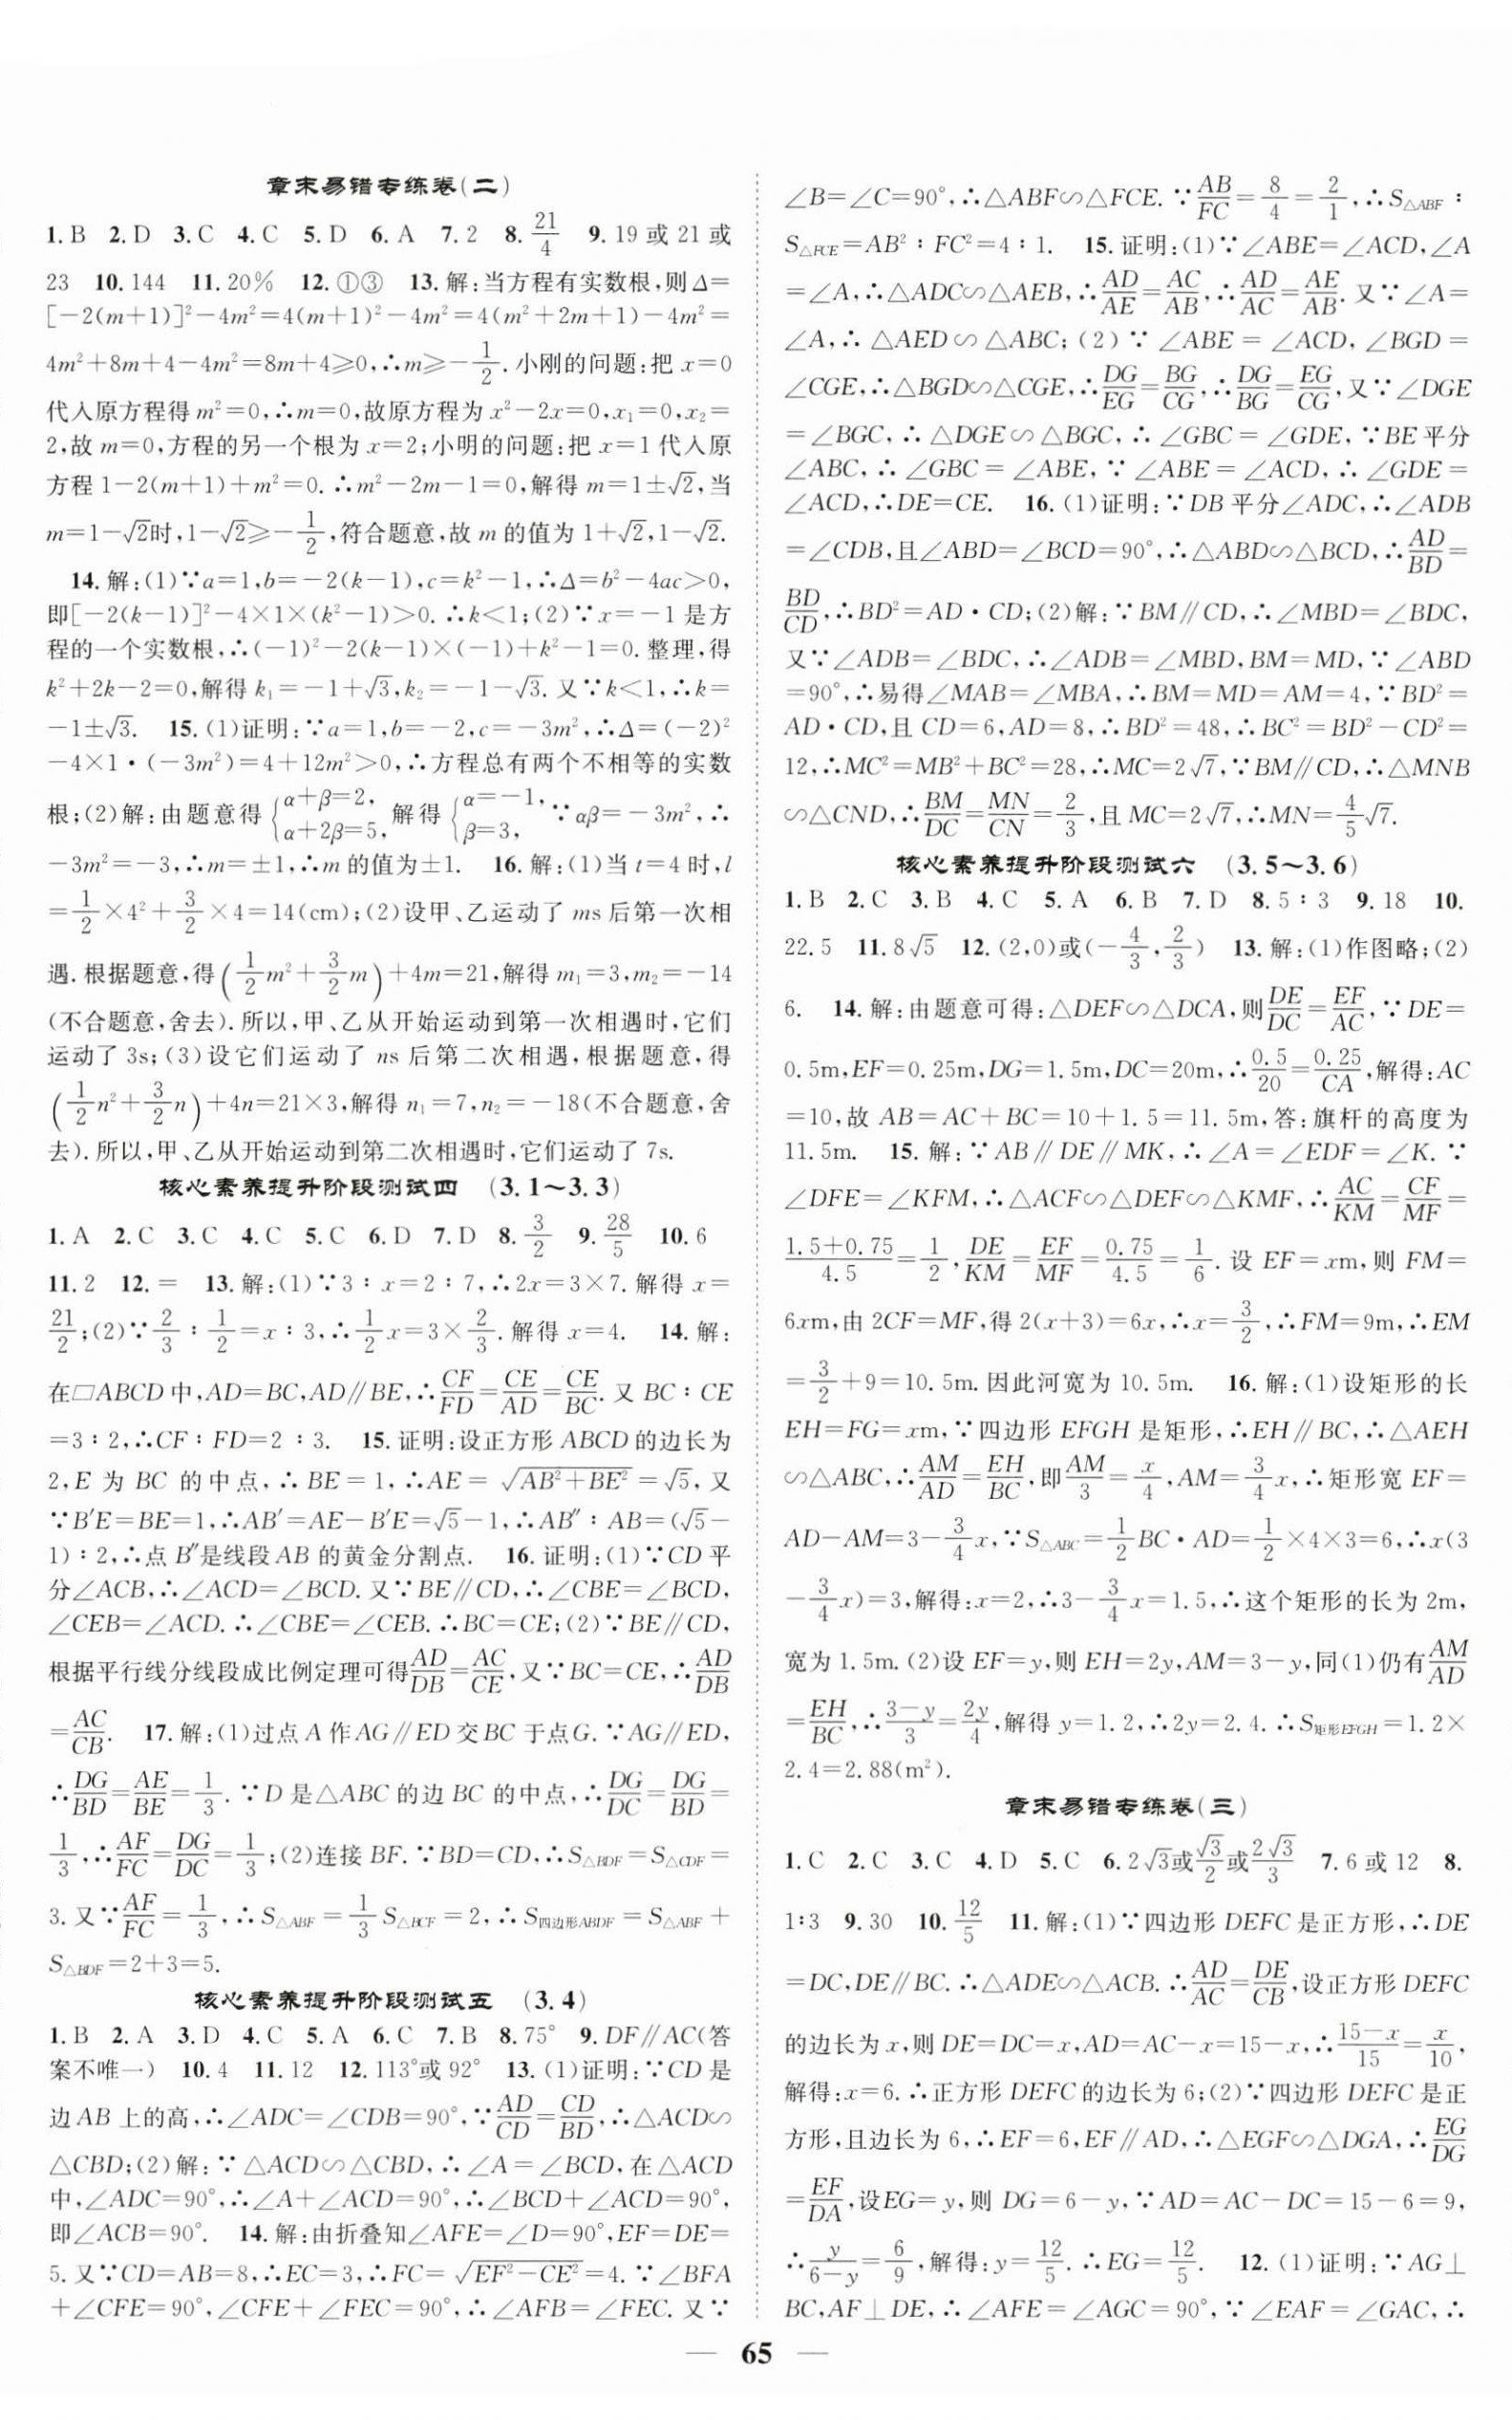 章末易错专练卷(二)
1.B 2.D 3.C 4.C 5.D 6.A 7.2 8.21/4 9.19或21或
23 10.144 11.20% 12.①③ 13.解:当方程有实数根,则Δ=
[-2(m+1)]²-4m²=4(m+1)²-4m²=4(m²+2m+1)-4m²=
4m²+8m+4-4m²=8m+4≥0,∴m≥-1/2.小刚的问题:把x=0
代入原方程得m²=0,∴m=0,故原方程为x²-2x=0,x₁=0,x₂=
2,故m=0,方程的另一个根为x=2;小明的问题:把x=1代入原
方程1-2(m+1)+m²=0.∴m²-2m-1=0,解得m=1±√2,当
m=1-√2时,1-√2≥-1/2,符合题意,故m的值为1+√2,1-√2.
14.解:(1)∵a=1,b=-2(k-1),c=k²-1,∴Δ=b²-4ac>0,
即[-2(k-1)]²-4×1×(k²-1)>0.∴k<1;(2)∵x=-1是方
程的一个实数根,∴(-1)²-2(k-1)×(-1)+k²-1=0.整理,得
k²+2k-2=0,解得k₁=-1+√3,k₂=-1-√3.又∵k<1,∴k=
-1±√3. 15.(1)证明:∵a=1,b=-2,c=-3m²,∴Δ=(-2)²
-4×1·(-3m²)=4+12m²>0,∴方程总有两个不相等的实数
根;(2)解:由题意得{α+β=2, α+2β=5, 解得{α=-1, β=3, ∵αβ=-3m²,∴
-3m²=-3,∴m=±1,∴m的值为±1. 16.解:(1)当t=4时,l
=1/2×4²+3/2×4=14(cm);(2)设甲、乙运动了ms后第一次相
遇.根据题意,得(1/2m²+3/2m)+4m=21,解得m₁=3,m₂=-14
(不合题意,舍去).所以,甲、乙从开始运动到第一次相遇时,它们
运动了3s;(3)设它们运动了ns后第二次相遇,根据题意,得
(1/2n²+3/2n)+4n=21×3,解得n₁=7,n₂=-18(不合题意,舍
去).所以,甲、乙从开始运动到第二次相遇时,它们运动了7s.
核心素养提升阶段测试四 (3.1~3.3)
1.A 2.C 3.C 4.C 5.C 6.D 7.D 8.3/2 9.28/5 10.6
11.2 12.= 13.解:(1)∵3∶x=2∶7,∴2x=3×7.解得x=
21/2;(2)∵2/3∶1/2=x∶3,∴1/2x=3×2/3.解得x=4. 14.解:
在▱ABCD中,AD=BC,AD∥BE,∴CF/FD=CE/AD=CE/BC.又BC∶CE
=3∶2,∴CF∶FD=2∶3. 15.证明:设正方形ABCD的边长为
2,E为BC的中点,∴BE=1,∴AE=√(AB²+BE²)=√5,又
∵B′E=BE=1,∴AB′=AE-B′E=√5-1,∴AB″∶AB=(√5-
1)∶2,∴点B″是线段AB的黄金分割点. 16.证明:(1)∵CD平
分∠ACB,∴∠ACD=∠BCD.又∵BE∥CD,∴∠CBE=∠BCD,
∠CEB=∠ACD.∴∠CBE=∠CEB.∴BC=CE;(2)∵BE∥CD,
根据平行线分线段成比例定理可得AD/DB=AC/CE,又∵BC=CE,∴AD/DB
=AC/CB. 17.解:(1)过点A作AG∥ED交BC于点G.∵AG∥ED,
∴DG/BD=AE/BE=1/3.∵D是△ABC的边BC的中点,∴DG/DC=DG/BD=
1/3,∴AF/FC=DG/DC=1/3;(2)连接BF.∵BD=CD,∴S△BDF=S△CDF=
3.又∵AF/FC=1/3,∴S△ABF=1/3S△BCF=2,∴S四边形ABDF=S△ABF+
S△BDF=2+3=5.
核心素养提升阶段测试五 (3.4)
1.B 2.A 3.D 4.C 5.A 6.C 7.B 8.75° 9.DF∥AC(答
案不唯一) 10.4 11.12 12.113°或92° 13.(1)证明:∵CD是
边AB上的高,∴∠ADC=∠CDB=90°,∵AD/CD=CD/BD,∴△ACD∽
△CBD;(2)解:∵△ACD∽△CBD,∴∠A=∠BCD,在△ACD
中,∠ADC=90°,∴∠A+∠ACD=90°,∴∠BCD+∠ACD=90°,
即∠ACB=90°. 14.解:由折叠知∠AFE=∠D=90°,EF=DE=
5.又∵CD=AB=8,∴EC=3,∴FC=√(EF²-CE²)=4.∵∠BFA
+∠CFE=90°,∠CFE+∠FEC=90°,∴∠AFB=∠FEC.又∵
∠B=∠C=90°,∴△ABF∽△FCE.∵AB/FC=8/4=2/1,∴S△ABF∶
S△FCE=AB²∶FC²=4∶1. 15.证明:(1)∵∠ABE=∠ACD,∠A
=∠A,∴△ADC∽△AEB,∴AD/AE=AC/AB,∴AD/AC=AE/AB.又∵∠A=
∠A,∴△AED∽△ABC;(2)∵∠ABE=∠ACD,∠BGD=
∠CGE,∴△BGD∽△CGE,∴DG/EG=BG/CG,∴DG/BG=EG/CG,又∵∠DGE
=∠BGC,∴△DGE∽△BGC,∴∠GBC=∠GDE,∵BE平分
∠ABC,∴∠GBC=∠ABE,∵∠ABE=∠ACD,∴∠GDE=
∠ACD,∴DE=CE. 16.(1)证明:∵DB平分∠ADC,∴∠ADB
=∠CDB,且∠ABD=∠BCD=90°,∴△ABD∽△BCD,∴AD/BD=
BD/CD,∴BD²=AD·CD;(2)解:∵BM∥CD,∴∠MBD=∠BDC,
又∵∠ADB=∠BDC,∴∠ADB=∠MBD,BM=MD,∵∠ABD
=90°,∴易得∠MAB=∠MBA,∴BM=MD=AM=4,∵BD²=
AD·CD,且CD=6,AD=8,∴BD²=48,∴BC²=BD²-CD²=
12,∴MC²=MB²+BC²=28,∴MC=2√7,∵BM∥CD,∴△MNB
∽△CND,∴BM/DC=MN/CN=2/3,且MC=2√7,∴MN=4/5√7.
核心素养提升阶段测试六 (3.5~3.6)
1.B 2.C 3.B 4.C 5.A 6.B 7.D 8.5∶3 9.18 10.
22.5 11.8√5 12.(2,0)或(-4/3,2/3) 13.解:(1)作图略;(2)
6. 14.解:由题意可得:△DEF∽△DCA,则DE/DC=EF/AC,∵DE=
0.5m,EF=0.25m,DG=1.5m,DC=20m,∴0.5/20=0.25/CA,解得:AC
=10,故AB=AC+BC=10+1.5=11.5m,答:旗杆的高度为
11.5m. 15.解:∵AB∥DE∥MK,∴∠A=∠EDF=∠K.∵
∠DFE=∠KFM,∴△ACF∽△DEF∽△KMF,∴AC/KM=CF/MF=
(1.5+0.75)/4.5=1/2,DE/KM=EF/MF=0.75/4.5=1/6.设EF=xm,则FM=
6xm,由2CF=MF,得2(x+3)=6x,∴x=3/2,∴FM=9m,∴EM
=3/2+9=10.5m.因此河宽为10.5m. 16.解:(1)设矩形的长
EH=FG=xm,∵四边形EFGH是矩形,∴EH∥BC,∴△AEH
∽△ABC,∴AM/AD=EH/BC,即AM/3=x/4,AM=3/4x,∴矩形宽EF=
AD-AM=3-3/4x,∵S△ABC=1/2BC·AD=1/2×4×3=6,∴x(3
-3/4x)=3,解得:x=2,∴3-3/4x=1.5,∴这个矩形的长为2m,
宽为1.5m.(2)设EF=y,则EH=2y,AM=3-y,同(1)仍有AM/AD
=EH/BC,∴(3-y)/3=2y/4,解得y=1.2,∴2y=2.4.∴S矩形EFGH=1.2×
2.4=2.88(m²).
章末易错专练卷(三)
1.C 2.C 3.C 4.D 5.C 6.2√3或√3/2或2√3/3 7.6或12 8.
1∶3 9.30 10.12/5 11.解:(1)∵四边形DEFC是正方形,∴DE
=DC,DE∥BC.∴△ADE∽△ACB.∴AD/AC=DE/CB,设正方形DEFC
的边长为x,则DE=DC=x,AD=AC-x=15-x,∴(15-x)/15=x/10,
解得:x=6.∴正方形DEFC的边长为6;(2)∵四边形DEFC是正
方形,且边长为6,∴EF=6,EF∥AD,∴△EGF∽△DGA,∴EG/DG
=EF/DA,设EG=y,则DG=6-y,∵AD=AC-DC=15-6=9,
∴y/(6-y)=6/9,解得:y=12/5.∴EG=12/5. 12.(1)证明:∵AG⊥
BC,AF⊥DE,∴∠AFE=∠AGC=90°,∵∠EAF=∠GAC,∴
— 65 —